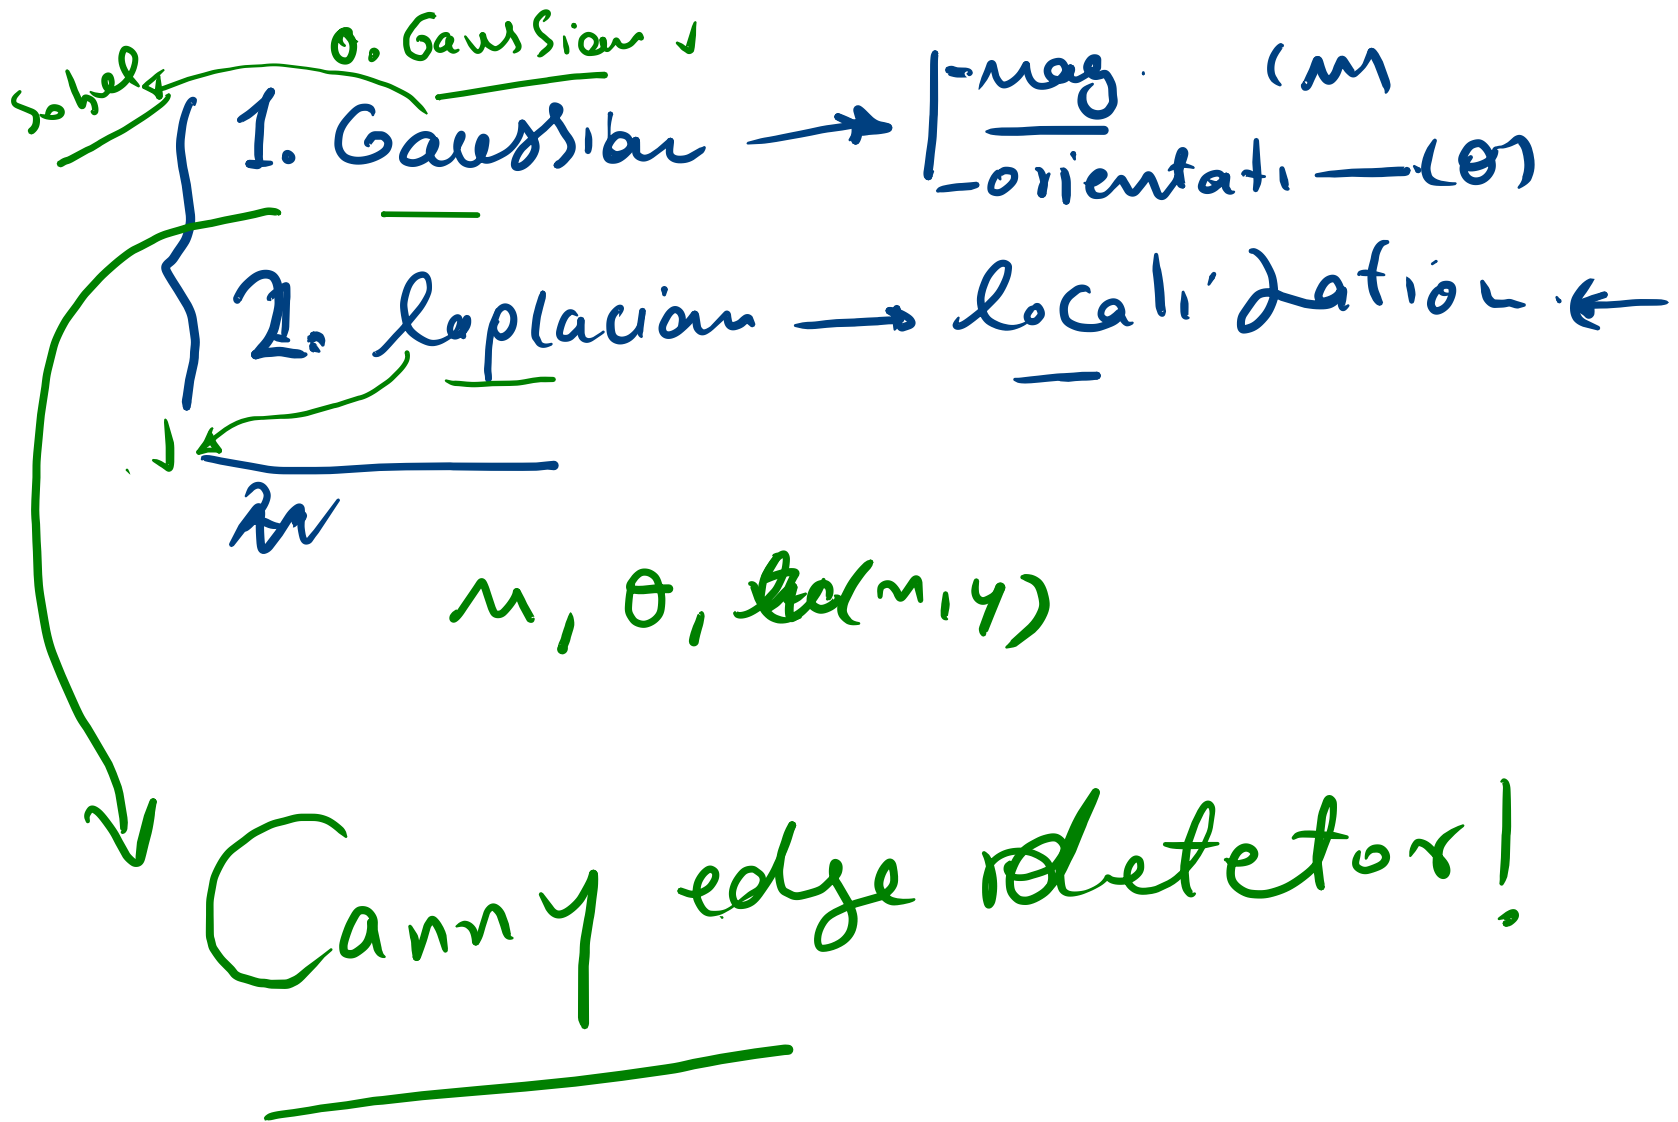 0. Gaussian
Sobel
1. Gaussian → - mag. (m)
- orientati — (θ)
2. laplacian → localization. ←
m, θ, (x, y)
Canny edge detetor!